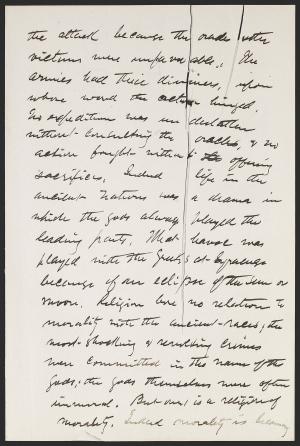 the attack because the oracle or the
victims were unfavorable. The
armies had their diviners, upon
whose word the action hinged.
No expedition was undertaken
without consulting the oracle, & no
action fought without the offering
sacrifices. Indeed life in the
ancient nations was a drama in
which the gods always played the
leading parts. What havoc was
played with the Greeks at Syracuse
because of an eclipse of the sun or
moon. Religion bore no relation to
morality with the ancient races; the
most shocking & revolting crimes
were committed in the name of the
gods; the gods themselves were often
immoral. But ours is a religion of
morality. Indeed morality is